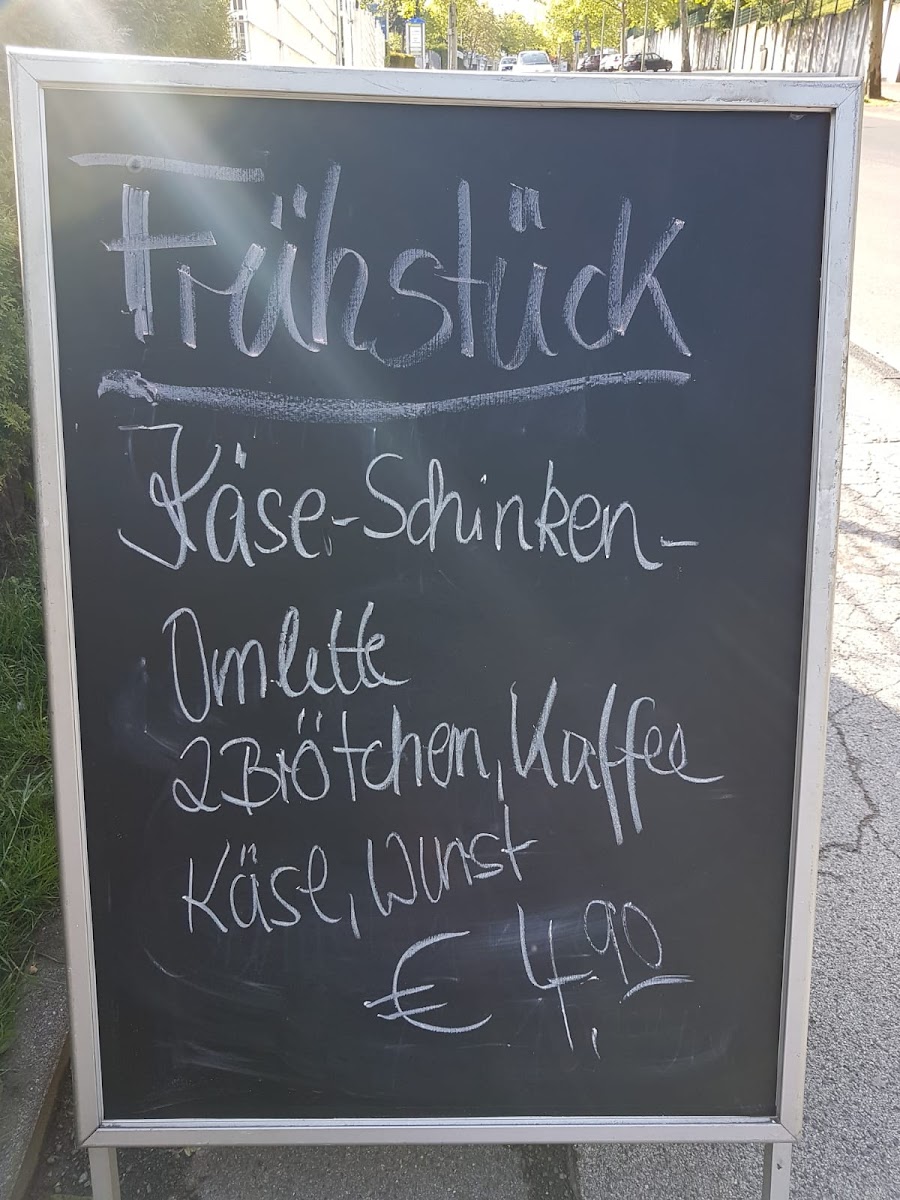 Frühstück
Käse-Schinken-
Omlette
2 Brötchen, Kaffee
Käse, Wurst
€ 4,90